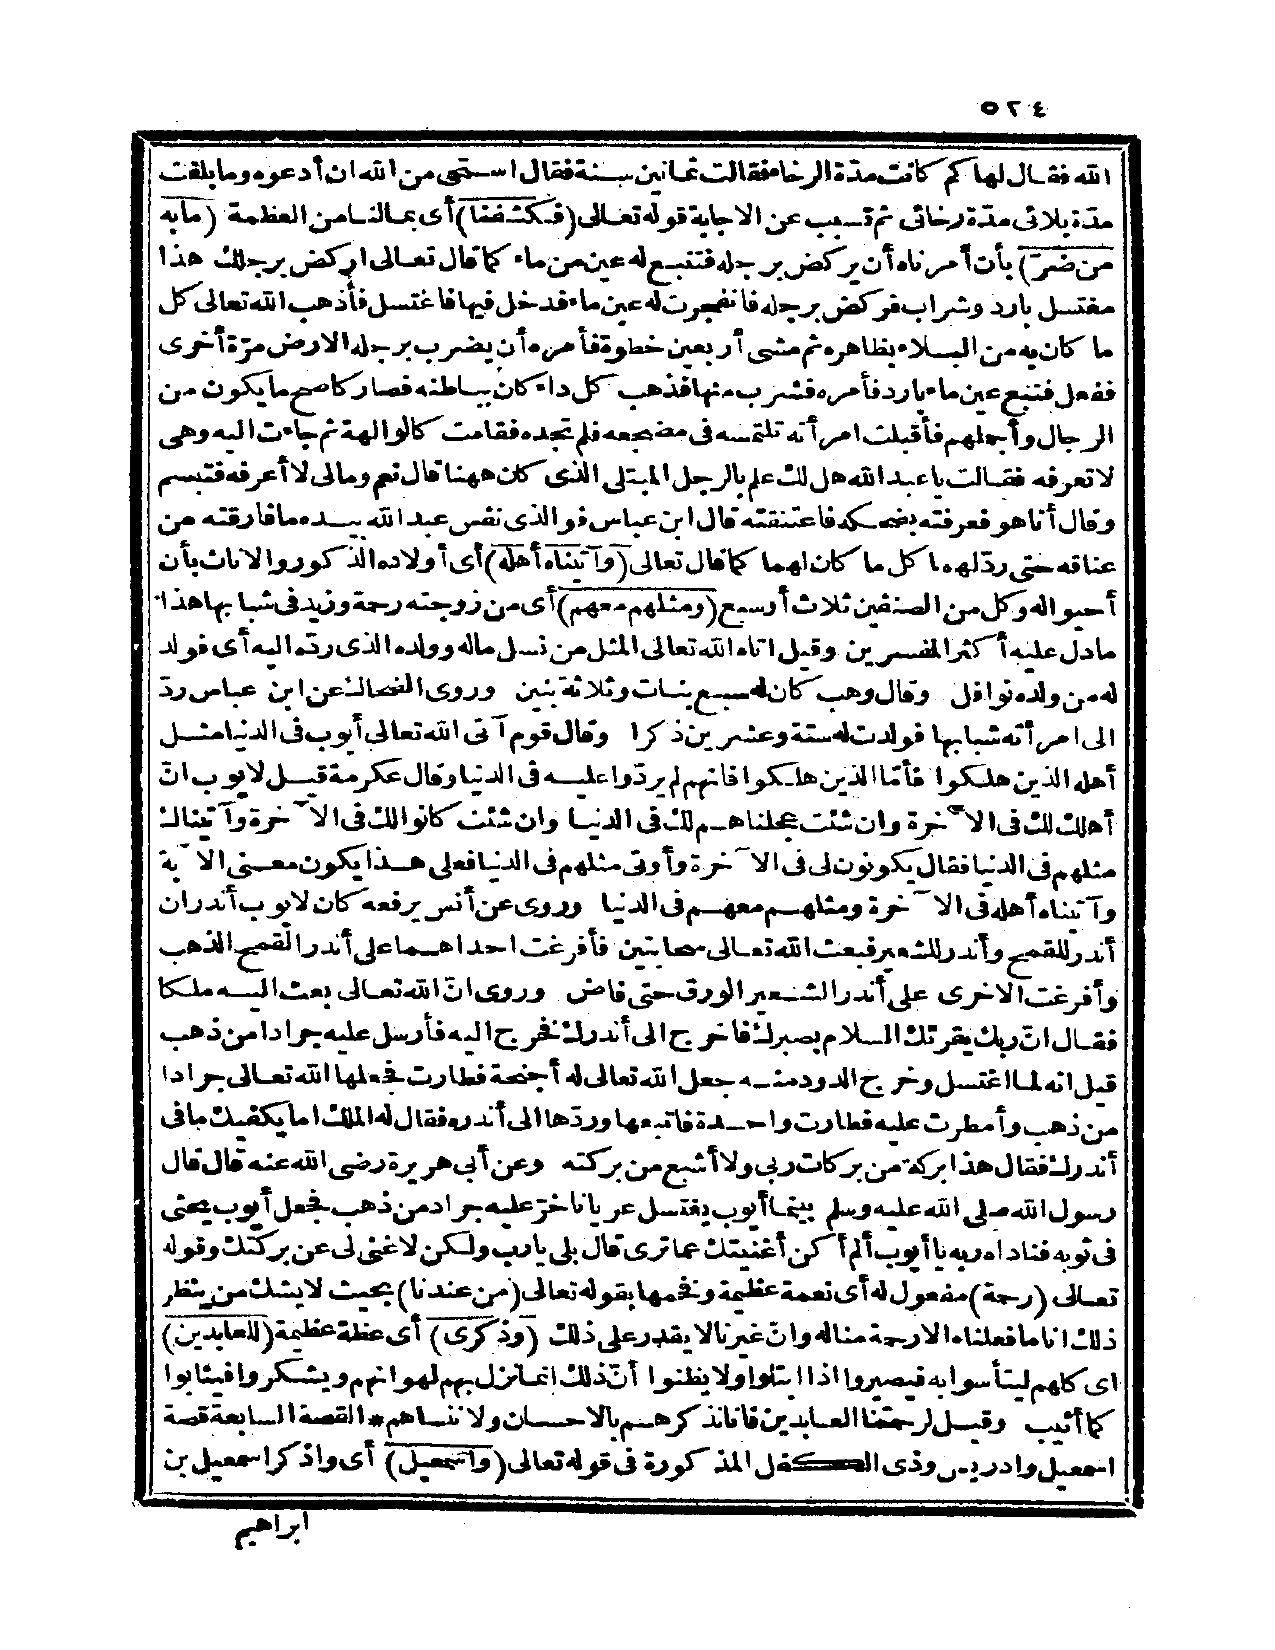 ٥٢٤
الله فقال لها كم كانت مدة الرخاء فقالت ثمانين سنة فقال استحي من الله ان أدعوه وما بلغت
مدة بلائى مدة رخائى ثم تسبب عن الاجابة قوله تعالى (فكشفنا) أى بما لنا من العظمة (ما به
من ضرّ) بأن أمرناه أن يركض برجله فتنبع له عين من ماء كما قال تعالى اركض برجلك هذا
مغتسل بارد وشراب فركض برجله فانفجرت له عين ماء فدخل فيها فاغتسل فأذهب الله تعالى كل
ما كان به من البلاء بظاهره ثم مشى أربعين خطوة فأمره أن يضرب برجله الارض مرّة أخرى
ففعل فتنبع عين ماء بارد فأمره فشرب منها فذهب كل داء كان بباطنه فصار كاصح ما يكون من
الرجال وأجملهم فأقبلت امرأته تلتمسه فى مضجعه فلم تجده فقامت كالوالهة ثم جاءت اليه وهى
لا تعرفه فقالت يا عبد الله هل لك علم بالرجل المبتلى الذى كان ههنا قال نعم ومالى لا أعرفه فتبسم
وقال أنا هو فعرفته بضحكه فاعتنقته قال ابن عباس فو الذى نفس عبد الله بيده ما فارقته من
عناقه حتى ردّ لهما كل ما كان لهما كما قال تعالى (وآتيناه أهله) أى أولاده الذكور والاناث بأن
أحيوا له وكل من الصنفين ثلاث أو سبع (ومثلهم معهم) أى من زوجته رحمة وزيد فى شبابها هذا
ما دل عليه أكثر المفسرين وقيل اتاه الله تعالى المثل من نسل ماله وولده الذى ردّه اليه أى فولد
له من ولده نوافل وقال وهب كان له سبع بنات وثلاثة بنين وروى الضحاك عن ابن عباس ردّ
الى امرأته شبابها فولدت له ستة وعشرين ذكرا وقال قوم آتى الله تعالى أيوب فى الدنيا مثل
أهله الذين هلكوا فأمّا الذين هلكوا فانهم لم يردّوا عليه فى الدنيا وقال عكرمة قيل لايوب انّ
أهلك لك فى الآخرة وان شئت عجلناهم لك فى الدنيا وان شئت كانوا لك فى الآخرة وآتيناك
مثلهم فى الدنيا فقال يكونون لى فى الآخرة وأوتى مثلهم فى الدنيا فعلى هذا يكون معنى الآية
وآتيناه أهله فى الآخرة ومثلهم معهم فى الدنيا وروى عن أنس يرفعه كان لايوب أندران
أندر للقمح وأندر للشعير فبعث الله تعالى سحابتين فأفرغت احداهما على أندر القمح الذهب
وأفرغت الاخرى على أندر الشعير الورق حتى فاض وروى انّ الله تعالى بعث اليه ملكا
فقال انّ ربك يقرئك السلام بصبرك فاخرج الى أندرك فخرج اليه فأرسل عليه جرادا من ذهب
قيل انه لما اغتسل وخرج الدود منه جعل الله تعالى له أجنحة فطارت فجعلها الله تعالى جرادا
من ذهب وأمطرت عليه فطارت واحدة فاتبعها وردّها الى أندره فقال له الملك اما يكفيك ما فى
أندرك فقال هذا بركة من بركات ربى ولا أشبع من بركته وعن أبى هريرة رضى الله عنه قال قال
رسول الله صلى الله عليه وسلم بينما أيوب يغتسل عريانا خرّ عليه جراد من ذهب فجعل أيوب يحثى
فى ثوبه فناداه ربه يا أيوب ألم أكن أغنيتك عما ترى قال بلى يا رب ولكن لا غنى لى عن بركتك وقوله
تعالى (رحمة) مفعول له أى نعمة عظيمة وفخمها بقوله تعالى (من عندنا) بحيث لا يشك من ينظر
ذلك انا ما فعلناه الا رحمة منا له وانّ غيرنا لا يقدر على ذلك (وذكرى) أى عظة عظيمة (للعابدين)
اى كلهم ليتأسوا به فيصبروا اذا ابتلوا ولا يظنوا أنّ ذلك انما نزل بهم لهوانهم ويشكروا فيثابوا
كما أثيب وقيل لرحمتنا العابدين فانا نذكرهم بالاحسان ولا ننساهم * القصة السابعة قصة
اسمعيل وادريس وذى الكفل المذكورة فى قوله تعالى (واسمعيل) أى واذكر اسمعيل بن
ابراهيم